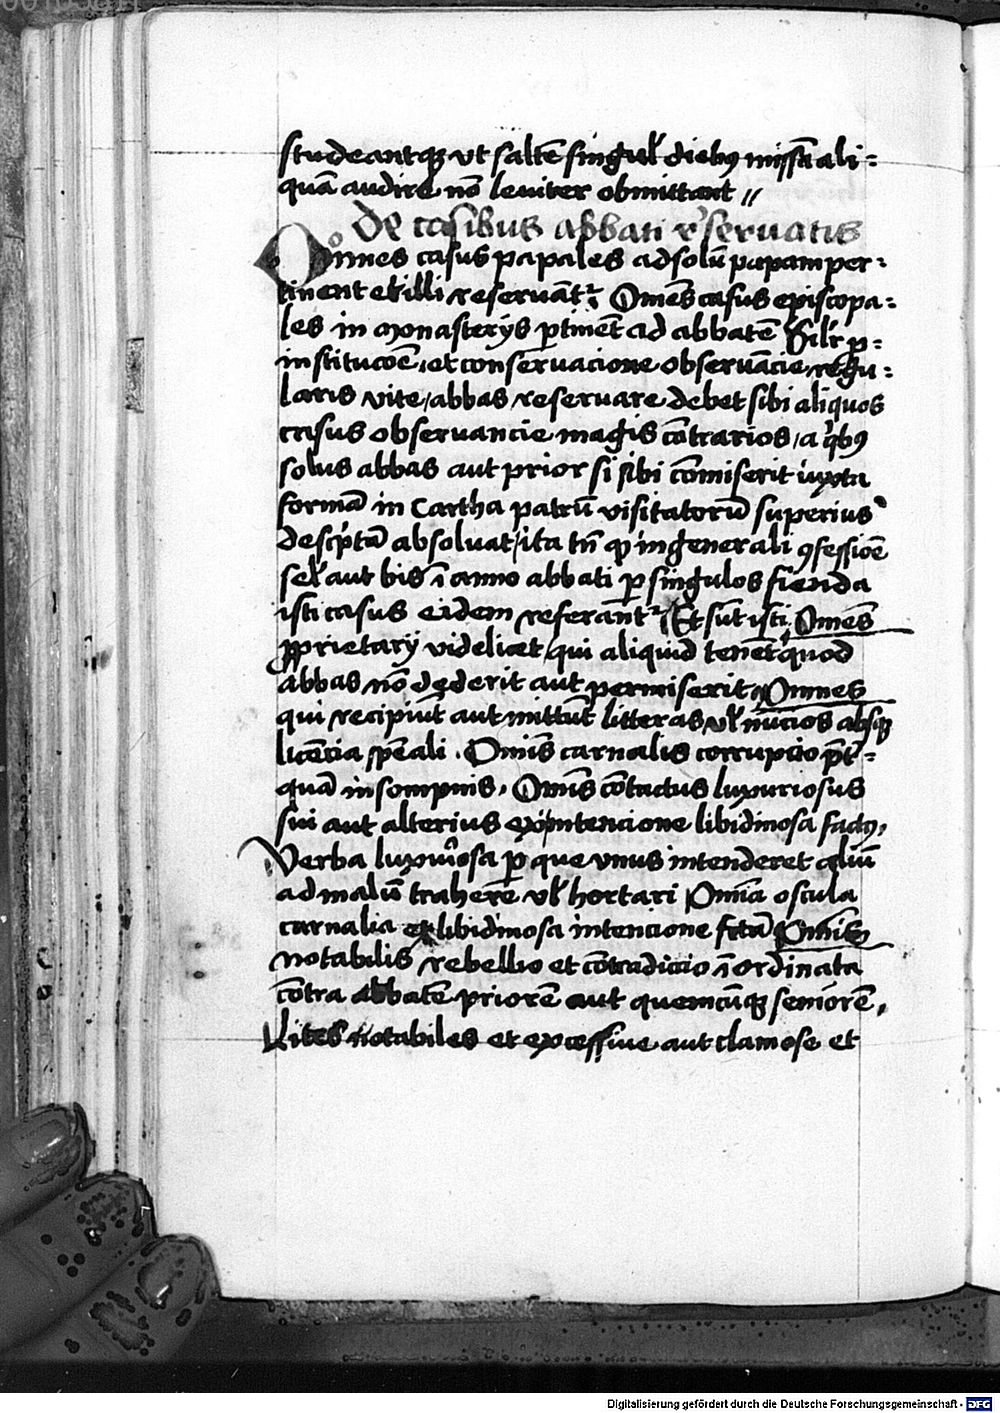 studeantq3 vt saltē singul' diebꝰ missā ali=
quā audire nō leuiter obmittant //
De casibus abbati r̄seruatis
Omnes casus papales ad solū papam per=
tinent et illi reseruāt᷑. Omēs casus episcopa=
les in monasterijs ꝑtinēt ad abbatē Silr̄ ꝑ=
institucōe, et conseruacione obseruācie regu=
laris vite / abbas reseruare debet sibi aliquos
casus obseruancie magis cōtrarios / a q̇bꝰ
solus abbas aut prior si sibi cōmiserit iuxta
formā in Cartha patrū visitatorū superius
desc'ptā absoluat / ita tn̄ ꝙ in generali ꝯfessiōe
sel' aut bis ī anno abbati ꝑ singulos fienda
isti casus eidem referānt᷑ Et sūt isti. Omēs
ꝓprietarij videlicet, qui aliquid tenēt quod
abbas nō dederit aut permiserit Omnes
qui recipiūt aut mittūt litteras vl' nūcios absq3
licēcia sp̄eali. Omīs carnalis corrupcio p̄t=
quā in sompnis. Omīs cōtactus luxuriosus
sui aut alterius ex intencione libidinosa factꝰ,
Verba luxuriosa ꝑ que vnus intenderet aliū
ad malū traherē vl' hortari Omīa oscula
carnalia et libidinosa intencione fctā Omīs
notabilis rebellio et cōtradictio īordinata
cōtra abbatē priorē aut quemcūq3 seniorē,
Lites notabiles et excessiue aut clamose et
Digitalisierung gefördert durch die Deutsche Forschungsgemeinschaft - DFG